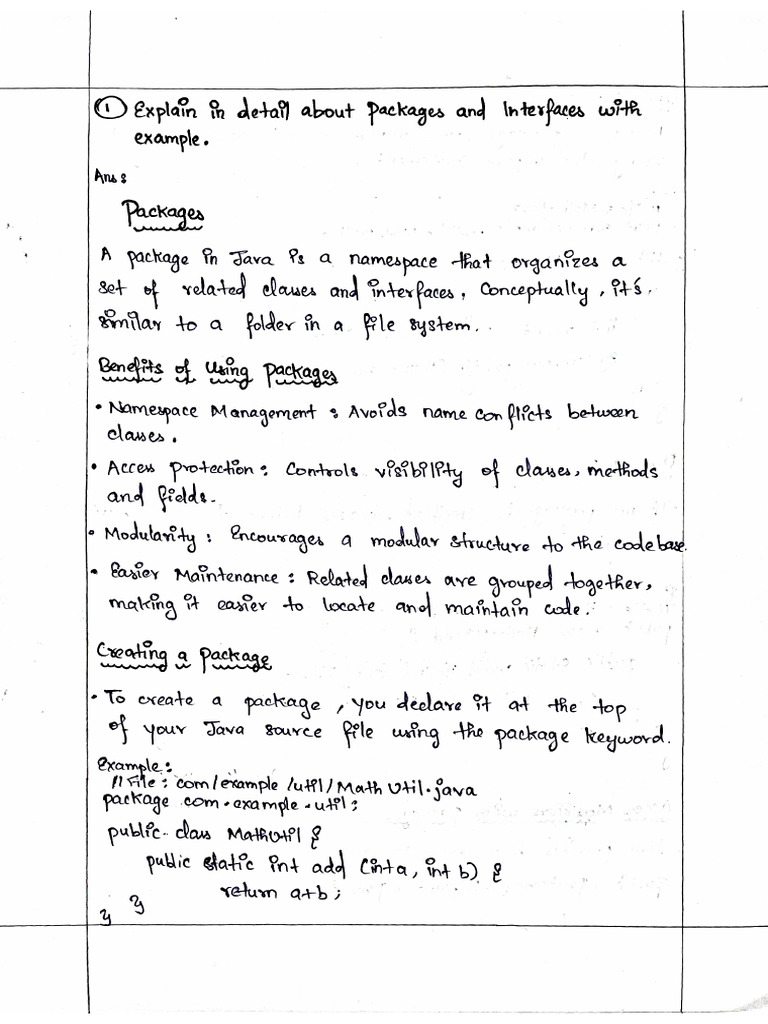 ① Explain in detail about packages and Interfaces with
example.
Ans :
Packages
A package in Java is a namespace that organizes a
set of related classes and interfaces, Conceptually, it's
similar to a folder in a file system.
Benefits of Using Packages
• Namespace Management : Avoids name conflicts between
classes.
• Access protection : Controls visibility of classes, methods
and fields.
• Modularity : Encourages a modular structure to the codebase.
• Easier Maintenance : Related classes are grouped together,
making it easier to locate and maintain code.
Creating a Package
• To create a package, you declare it at the top
of your Java source file using the package keyword.
Example :
// File : com/example/util/MathUtil.java
package com.example.util;
public class MathUtil {
public static int add (int a, int b) {
return a+b;
}
}